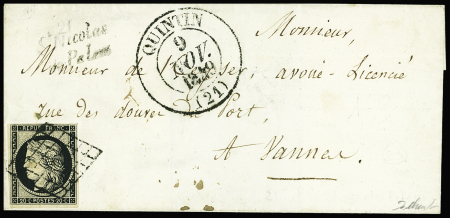 St Nicolas
Pelem
QUINTIN
6
NOV.
1849
(21)
Monsieur,
Monsieur de avoué-Licencié
rue des douves de Port,
A Vannes
REPUB. FRANC.
20 C POSTES 20 C